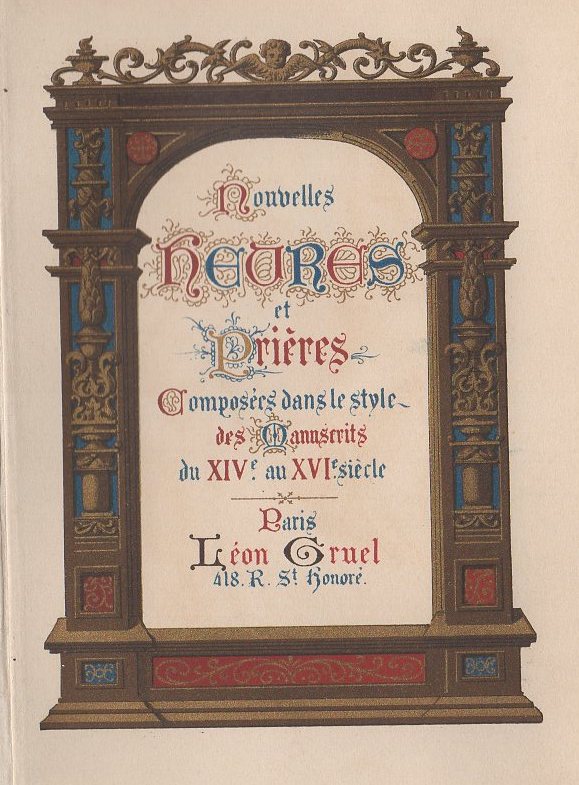 Nouvelles
HEURES
et
Prières
Composées dans le style
des Manuscrits
du XIVe. au XVIe. siècle
Paris
Léon Gruel
418. R. St. Honoré.